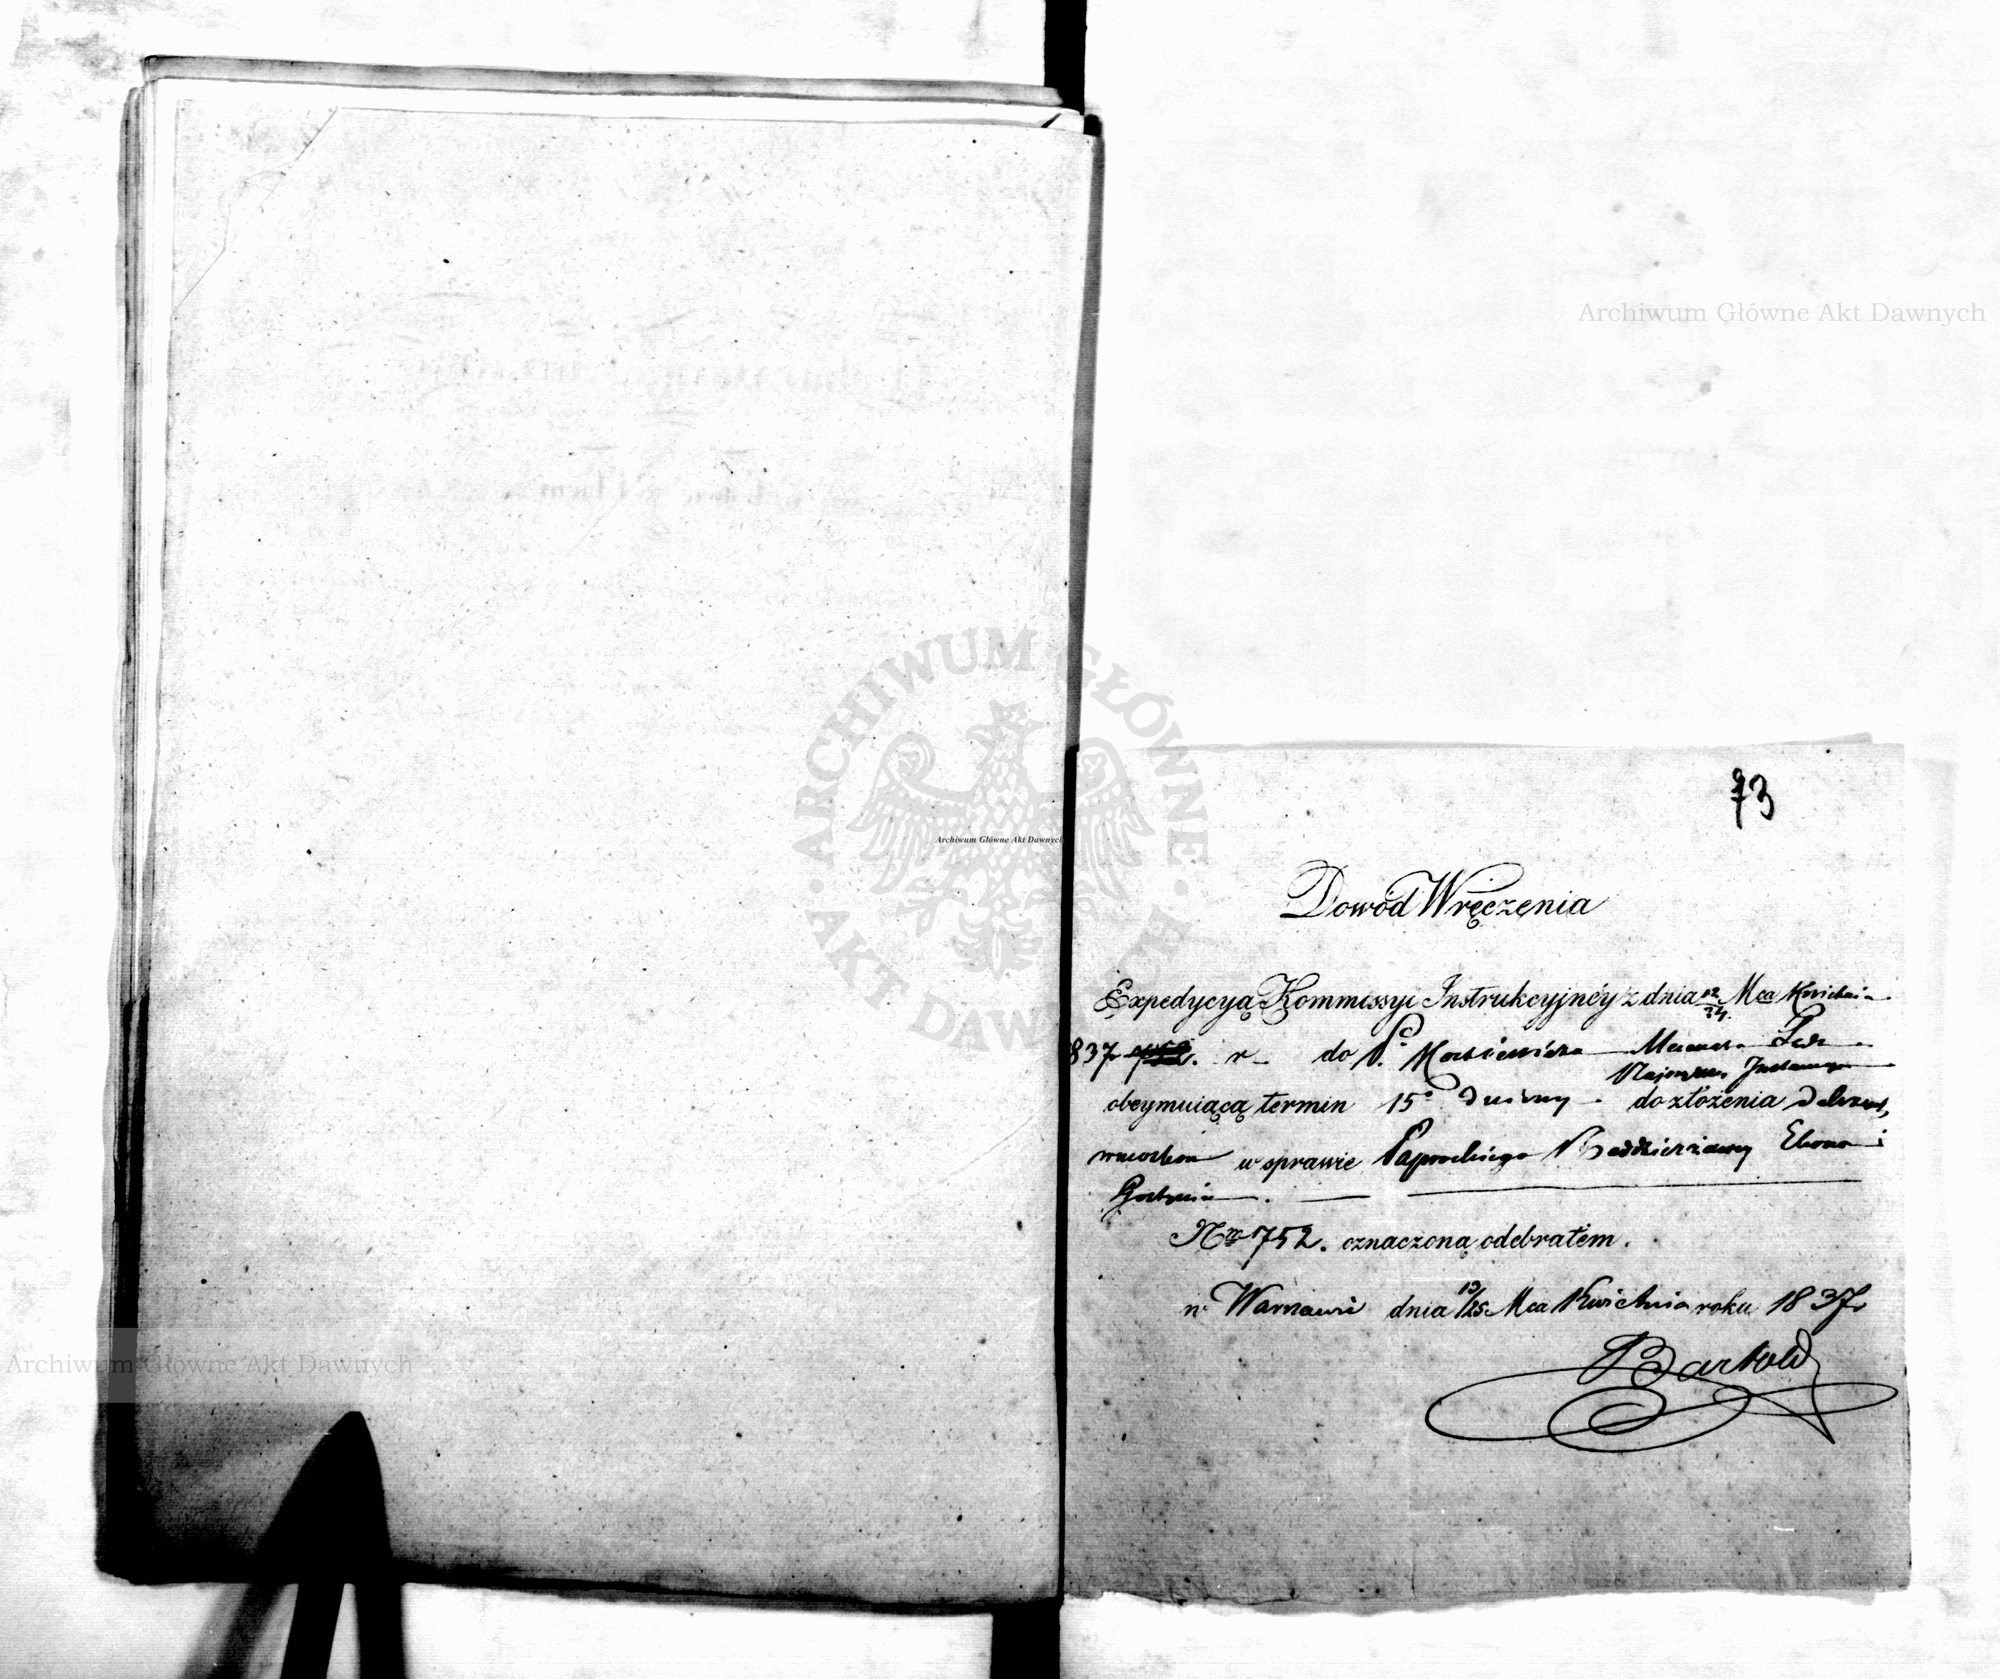 Archiwum Główne Akt Dawnych
ARCHIWUM GŁÓWNE AKT DAWNYCH
Archiwum Główne Akt Dawnych
73
Dowód Wręczenia
Expedycyą Kommissyi Instrukcyjnéy z dnia 12/24. Mca Kwietnia
837 r do P.
obeymuiącą termin 15o dniowy do złożenia
wniosków w sprawie Paprockiego Poddzierżawcy Ekonomi
Gostynin.
Nro 752. oznaczoną odebrałem.
w Warszawie dnia 13/25 Mca Kwietnia roku 1837
Bartold
Archiwum Główne Akt Dawnych